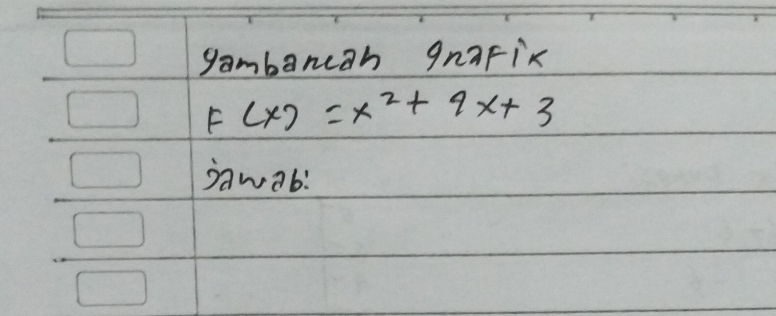 gambarcah grafik
F(x) = x² + 9x + 3
Jawab: